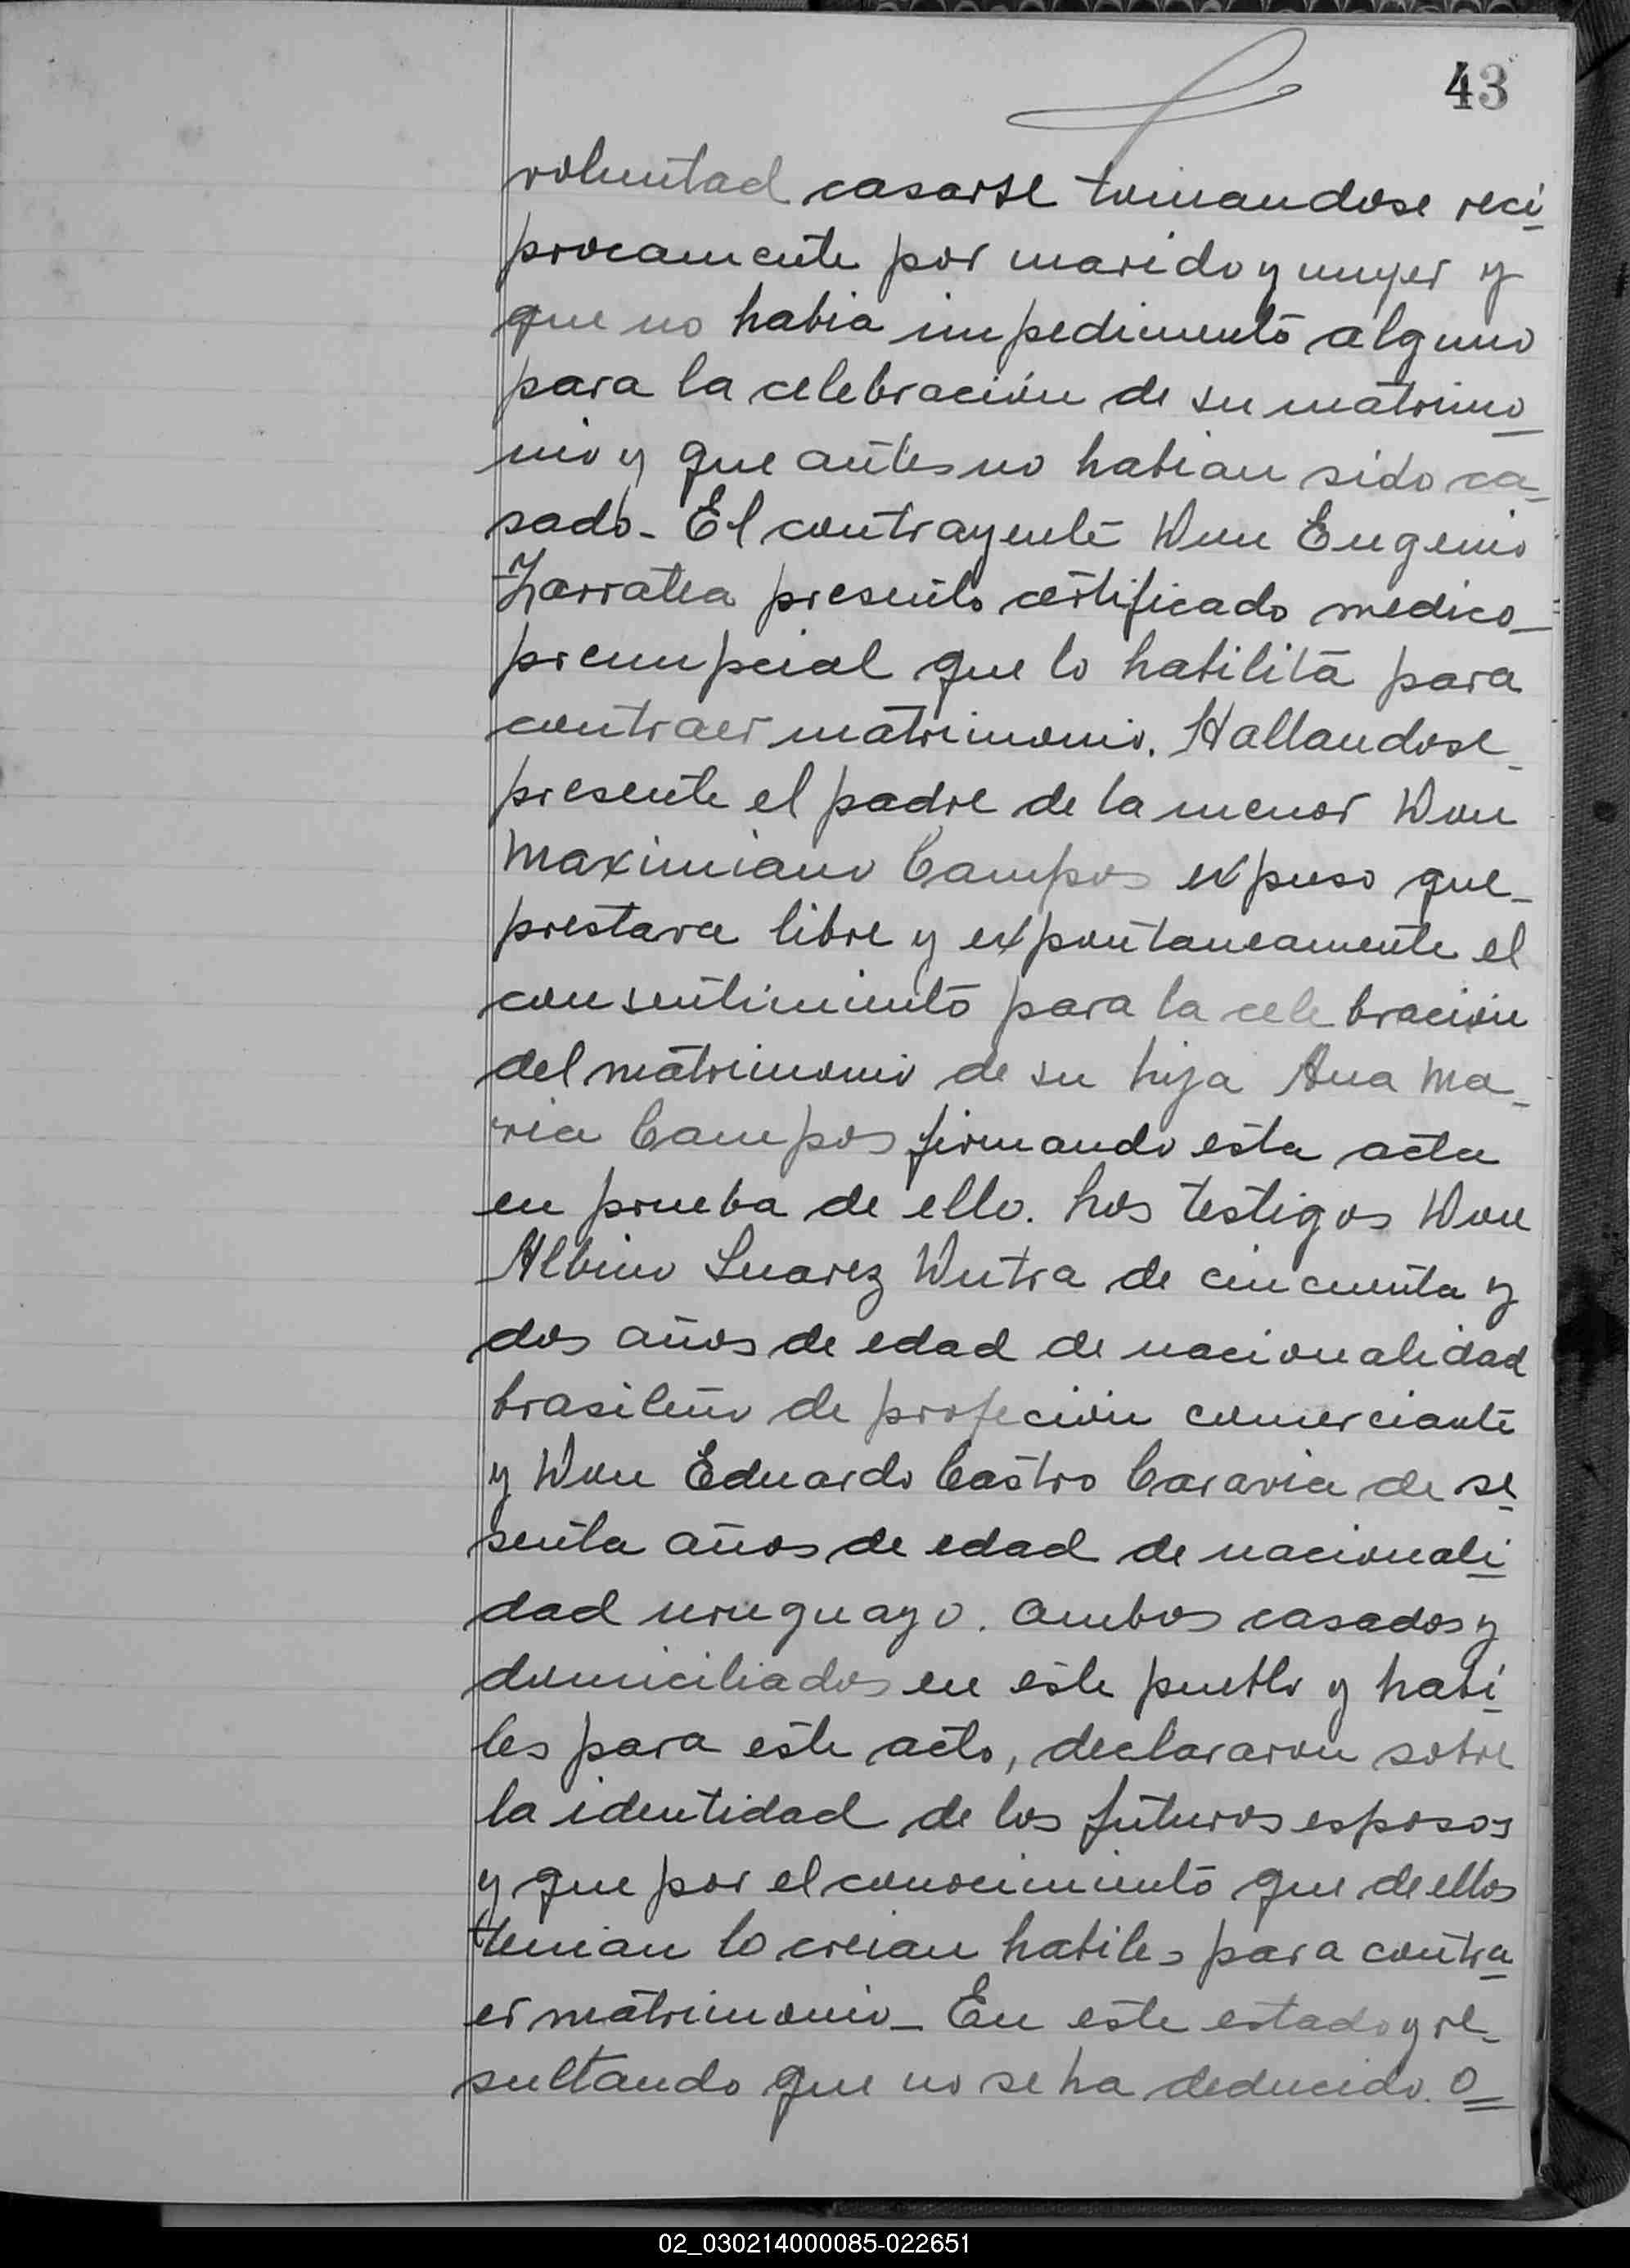 43
voluntad casarse tomandose reci
procamente por marido y mujer y
que no habia impedimento alguno
para la celebración de su matrimo
nio y que antes no habian sido ca-
sado - El contrayente Don Eugenio
Zarratea presento certificado medico-
prenupcial que lo habilita para
contraer matrimonio. Hallandose-
presente el padre de la menor Don
Maximiano Campos expuso que-
prestava libre y expontaneamente el
consentimiento para la celebración
del matrimonio de su hija Ana Ma-
ria Campos firmando esta acta
en prueba de ello. Los testigos Don
Albino Suarez Dutra de cincuenta y
dos años de edad de nacionalidad
brasileño de profeción comerciante
y Don Eduardo Castro Caravia de se
senta años de edad de nacionali
dad uruguayo. ambos casados y
domiciliados en este pueblo y habi
les para este acto, declararon sobre
la identidad de los futuros esposos
y que por el conocimiento que de ellos
tenian lo creian habiles para contra
er matrimonio - En este estado y re-
sultando que no se ha deducido. o
02_030214000085-022651